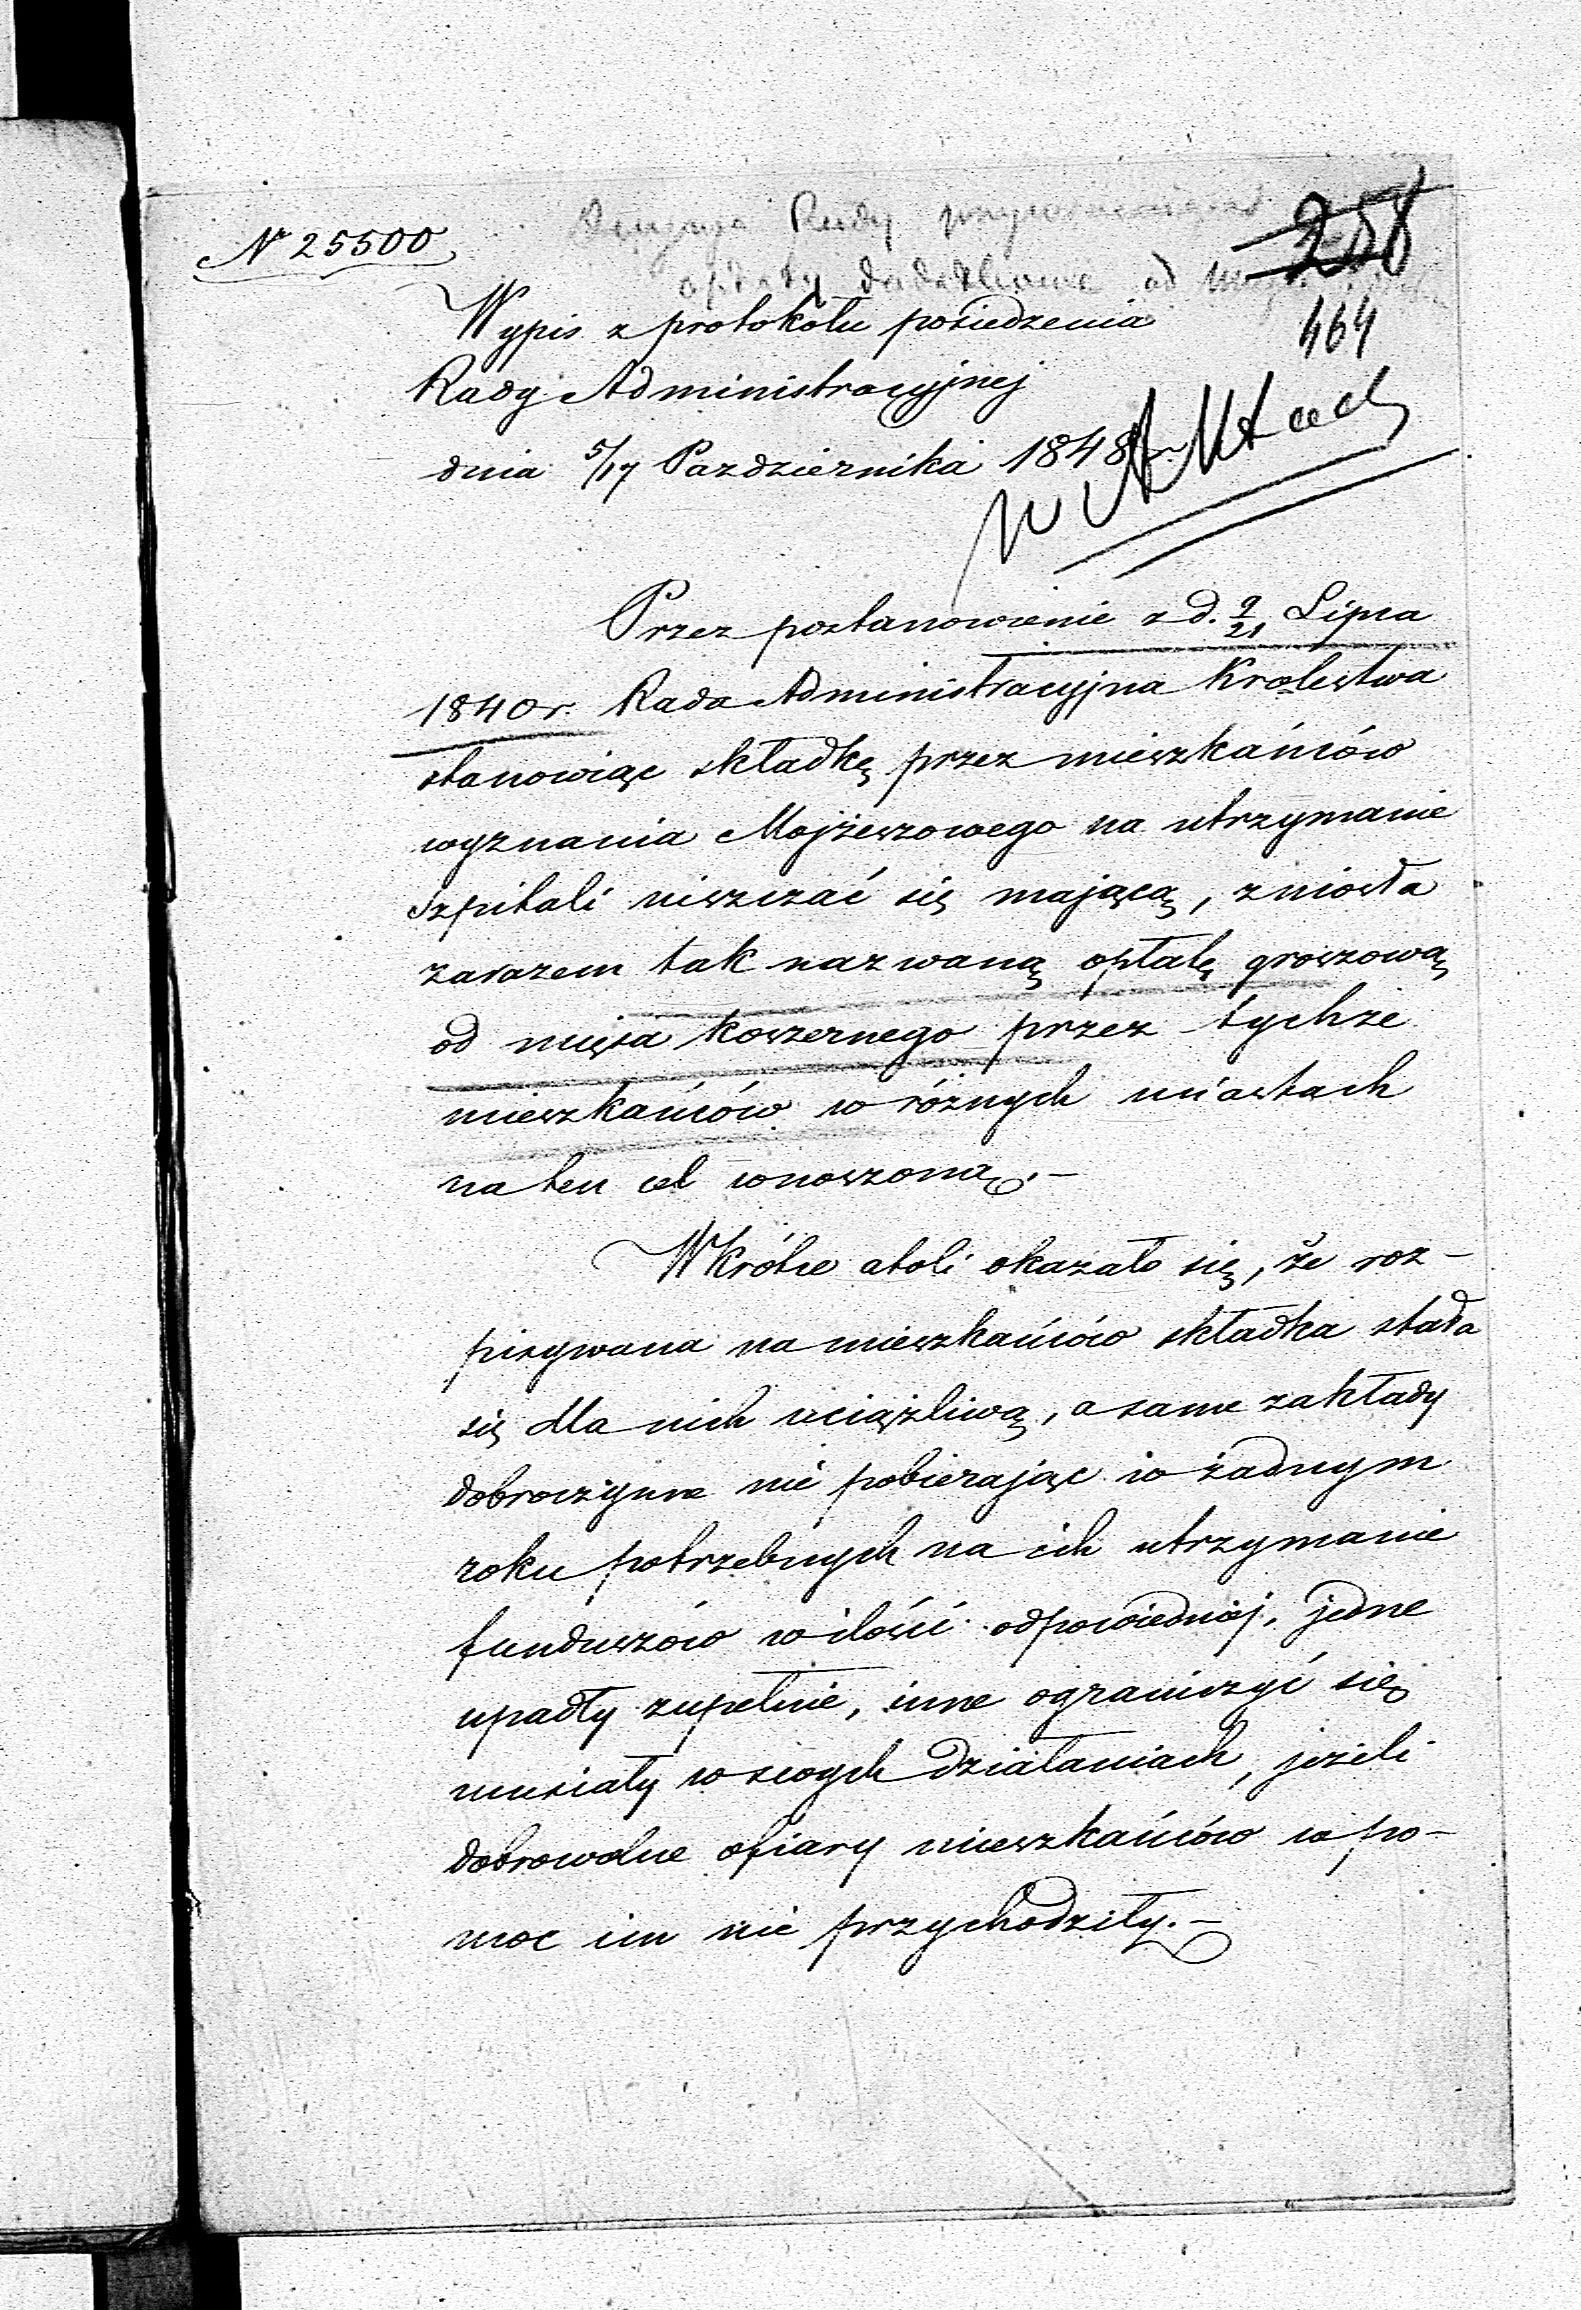 Nr 25500
Rady
opłaty dodatkowe od
258
464
Wypis z protokółu posiedzenia
Rady Administracyjnej
dnia 5/17 Pazdziernika 1848 r.
w Aktach
Przez postanowienie z d. 9/21 Lipca
1840 r. Rada Administracyjna Krolestwa
stanowiąc składkę przez mieszkańców
wyznania Mojżeszowego na utrzymanie
Szpitali uiszczać się mającą, zniosła
zarazem tak nazwaną opłatę groszową
od mięsa koszernego przez tychże
mieszkańców w różnych miastach
na ten cel wnoszoną.—
Wkrótce atoli okazało się, że roz-
pisywana na mieszkańców składka stała
się dla nich uciążliwą, a same zakłady
dobroczynne nie pobierając w żadnym
roku potrzebnych na ich utrzymanie
funduszów w ilości odpowiedniej, jedne
upadły zupełnie, inne ograniczyć się
musiały w swych działaniach, jeżeli
dobrowolne ofiary mieszkańców w po-
moc im nie przychodziły.—